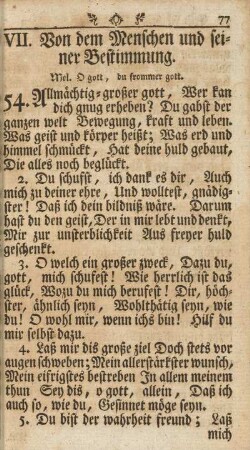 77
VII. Von dem Menschen und sei-
ner Bestimmung.
Mel. O gott, du frommer gott.
54. Allmächtig-großer gott, Wer kan
dich gnug erheben? Du gabst der
ganzen welt Bewegung, kraft und leben.
Was geist und körper heißt; Was erd und
himmel schmückt, Hat deine huld gebaut,
Die alles noch beglückt.
2. Du schufst, ich dank es dir, Auch
mich zu deiner ehre, Und wolltest, gnädig-
ster! Daß ich dein bildniß wäre. Darum
hast du den geist, Der in mir lebt und denkt,
Mir zur unsterblichkeit Aus freyer huld
geschenkt.
3. O welch ein großer zweck, Dazu du,
gott, mich schufest! Wie herrlich ist das
glück, Wozu du mich berufest! Dir, höch-
ster, ähnlich seyn, Wohlthätig seyn, wie
du! O wohl mir, wenn ichs bin! Hilf du
mir selbst dazu.
4. Laß mir dis große ziel Doch stets vor
augen schweben; Mein allerstärkster wunsch,
Mein eifrigstes bestreben In allem meinem
thun Sey dis, o gott, allein, Daß ich
auch so, wie du, Gesinnet möge seyn.
5. Du bist der wahrheit freund; Laß
mich